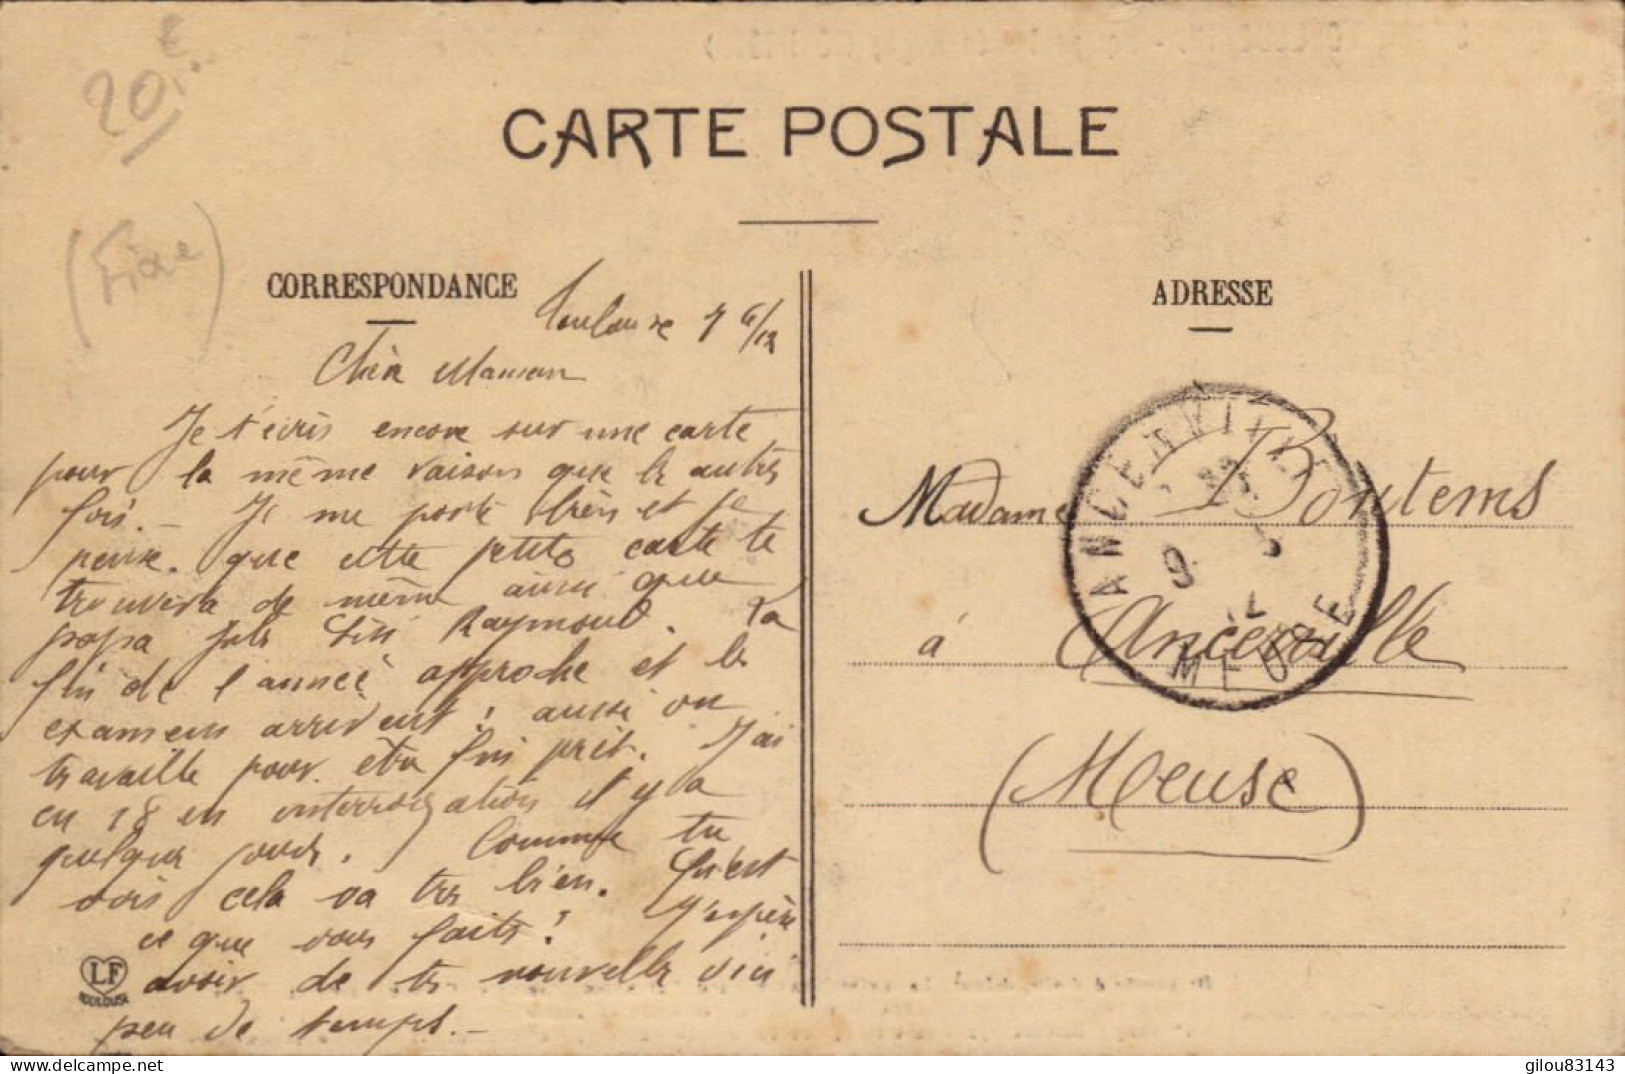 20€
(Fixe)
CARTE POSTALE
CORRESPONDANCE
ADRESSE
Toulouse 7 6/12
Chère Maman
Je t'écris encore sur une carte
pour la même raison que les autres
fois. - Je me porte bien et je
pense que cette petite carte te
trouvera de même ainsi que
papa Raymond. La
fin de l'année approche et les
examens arrivent ; aussi on
travaille pour être fin prêt. J'ai
eu 18 en interrogation il y a
quelques jours. Comme tu
vois cela va très bien. Qu'est
ce que vous faites ? J'espère
avoir de tes nouvelles d'ici
peu de temps. -
LF
TOULOUSE
Madame Bontems
à Ancerville
(Meuse)
ANCERVILLE
9 5
12
MEUSE
delcampe.net
gilou83143